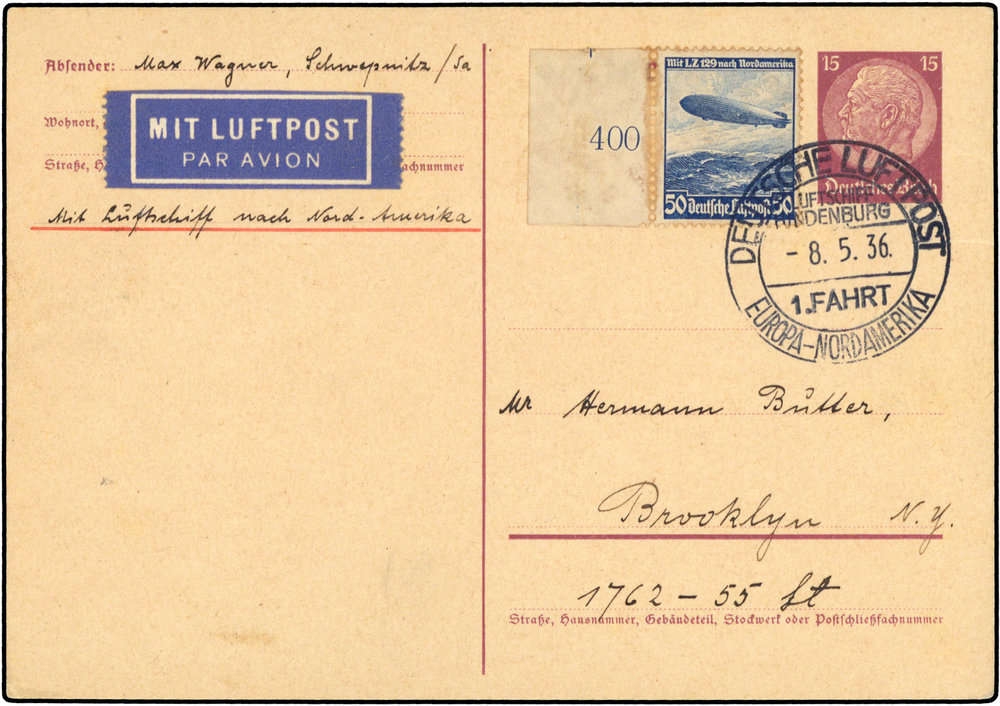 Absender: Max Wagner, Schwepnitz/Sa
Wohnort,
MIT LUFTPOST
PAR AVION
Straße, H
achnummer
Mit Luftschiff nach Nord-Amerika
400
Mit LZ 129 nach Nordamerika
50 Deutsche Luftpost 50
15 15
Deutsches Reich
DEUTSCHE LUFTPOST
LUFTSCHIFF
HINDENBURG
- 8. 5. 36.
1. FAHRT
EUROPA-NORDAMERIKA
Mr Hermann Bütter,
Brooklyn N.Y.
1762 - 55 St
Straße, Hausnummer, Gebäudeteil, Stockwerk oder Postschließfachnummer